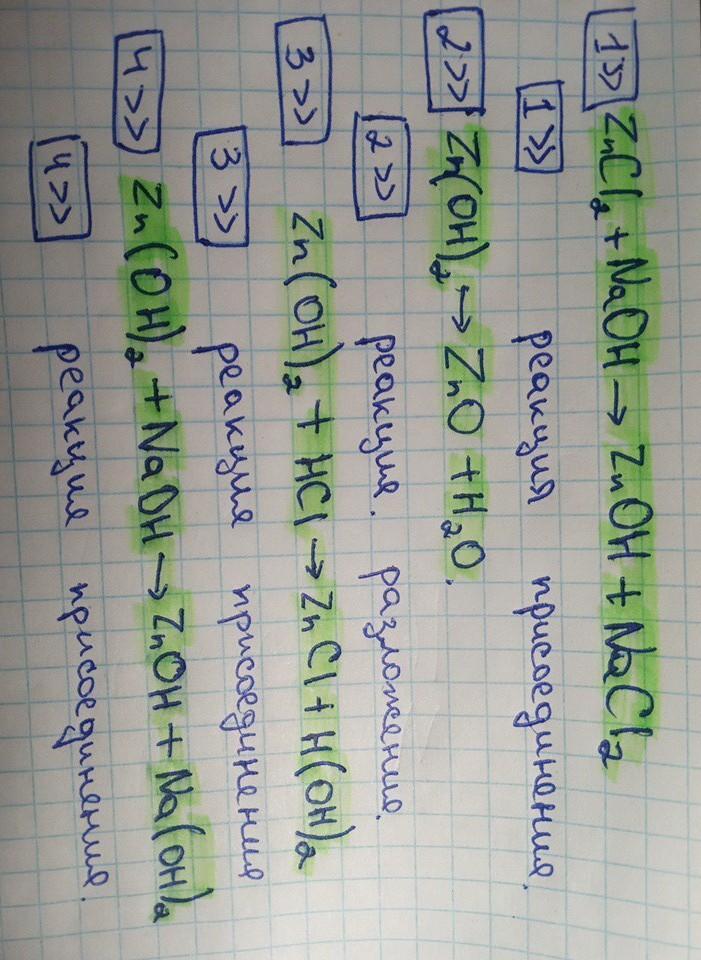 1>> ZnCl₂ + NaOH → ZnOH + NaCl₂
1>> реакция присоединения.
2>> Zn(OH)₂ → ZnO + H₂O.
2>> реакция. разложение.
3>> Zn(OH)₂ + HCl → ZnCl + H(OH)₂
3>> реакция присоединения
4>> Zn(OH)₂ + NaOH → ZnOH + Na(OH)₂
4>> реакция присоединения.